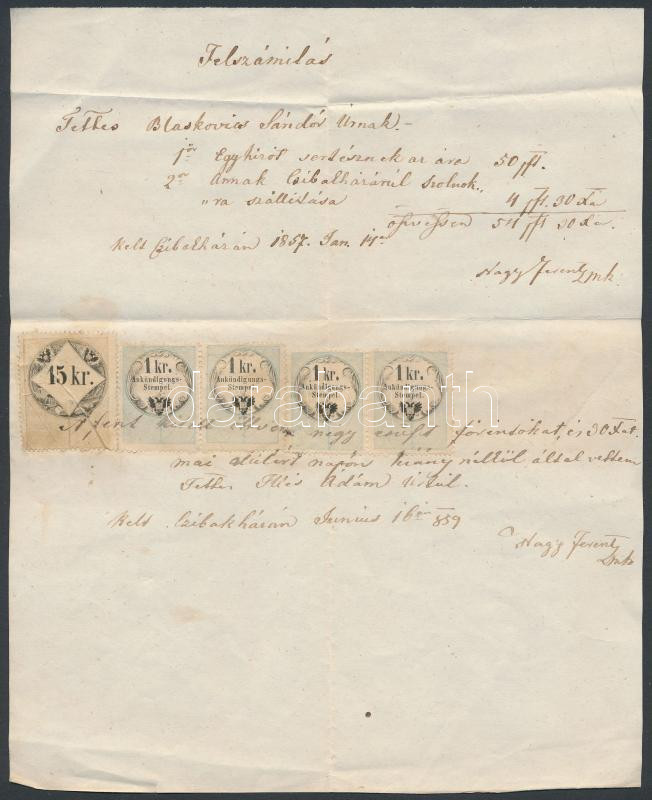 Felszámitás
Tettes Blaskovics Sándor Urnak.-
1ör Egy hizót sertésznek az ára 50 fft.
2or Annak Czibakházárúl Szolnok„
„ra szállitása 4 fft 30 Xa
öszvessen 54 fft 30 Xa.
Kelt Czibakházán 1857. Jan. 14én
Nagy Ferentz mk.
15 kr.
1 kr.
Ankündigungs-
Stempel.
1 kr.
Ankündigungs-
Stempel.
1 kr.
Ankündigungs-
Stempel.
1 kr.
Ankündigungs-
Stempel.
darabanth
A fent ötven négy ezüst forintokat, és 30 Xat
mai alúlirt napon hiány nélkül által vettem
Tettes Illés Ádám Úrtúl.
Kelt Czibakházán Junius 16án 859
Nagy Ferentz
mk